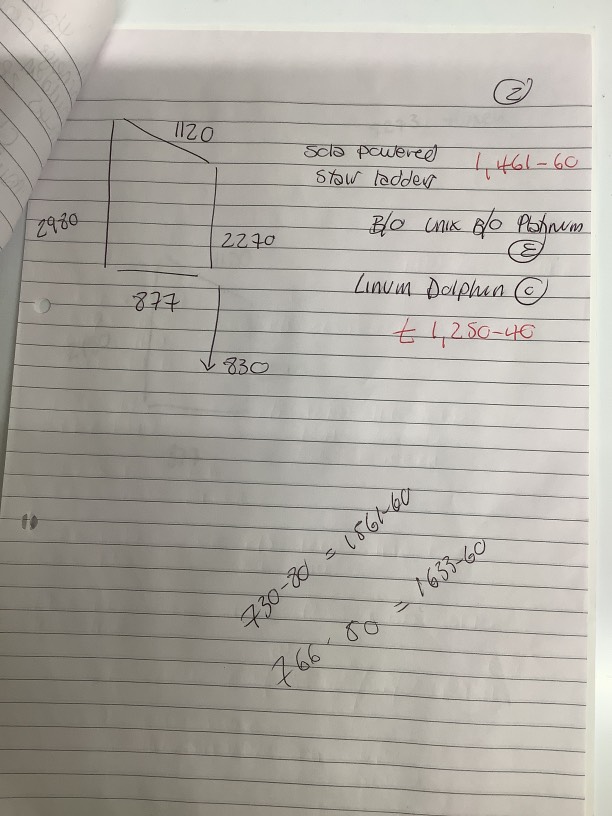 2
1120
Sola powered 1,461-60
Staw ladders
2980
B/O Unix B/O Platinum
E
2270
Linum Dolphin C
877
£ 1,250-40
830
730-80 = 1861-60
766.80 = 1633-60